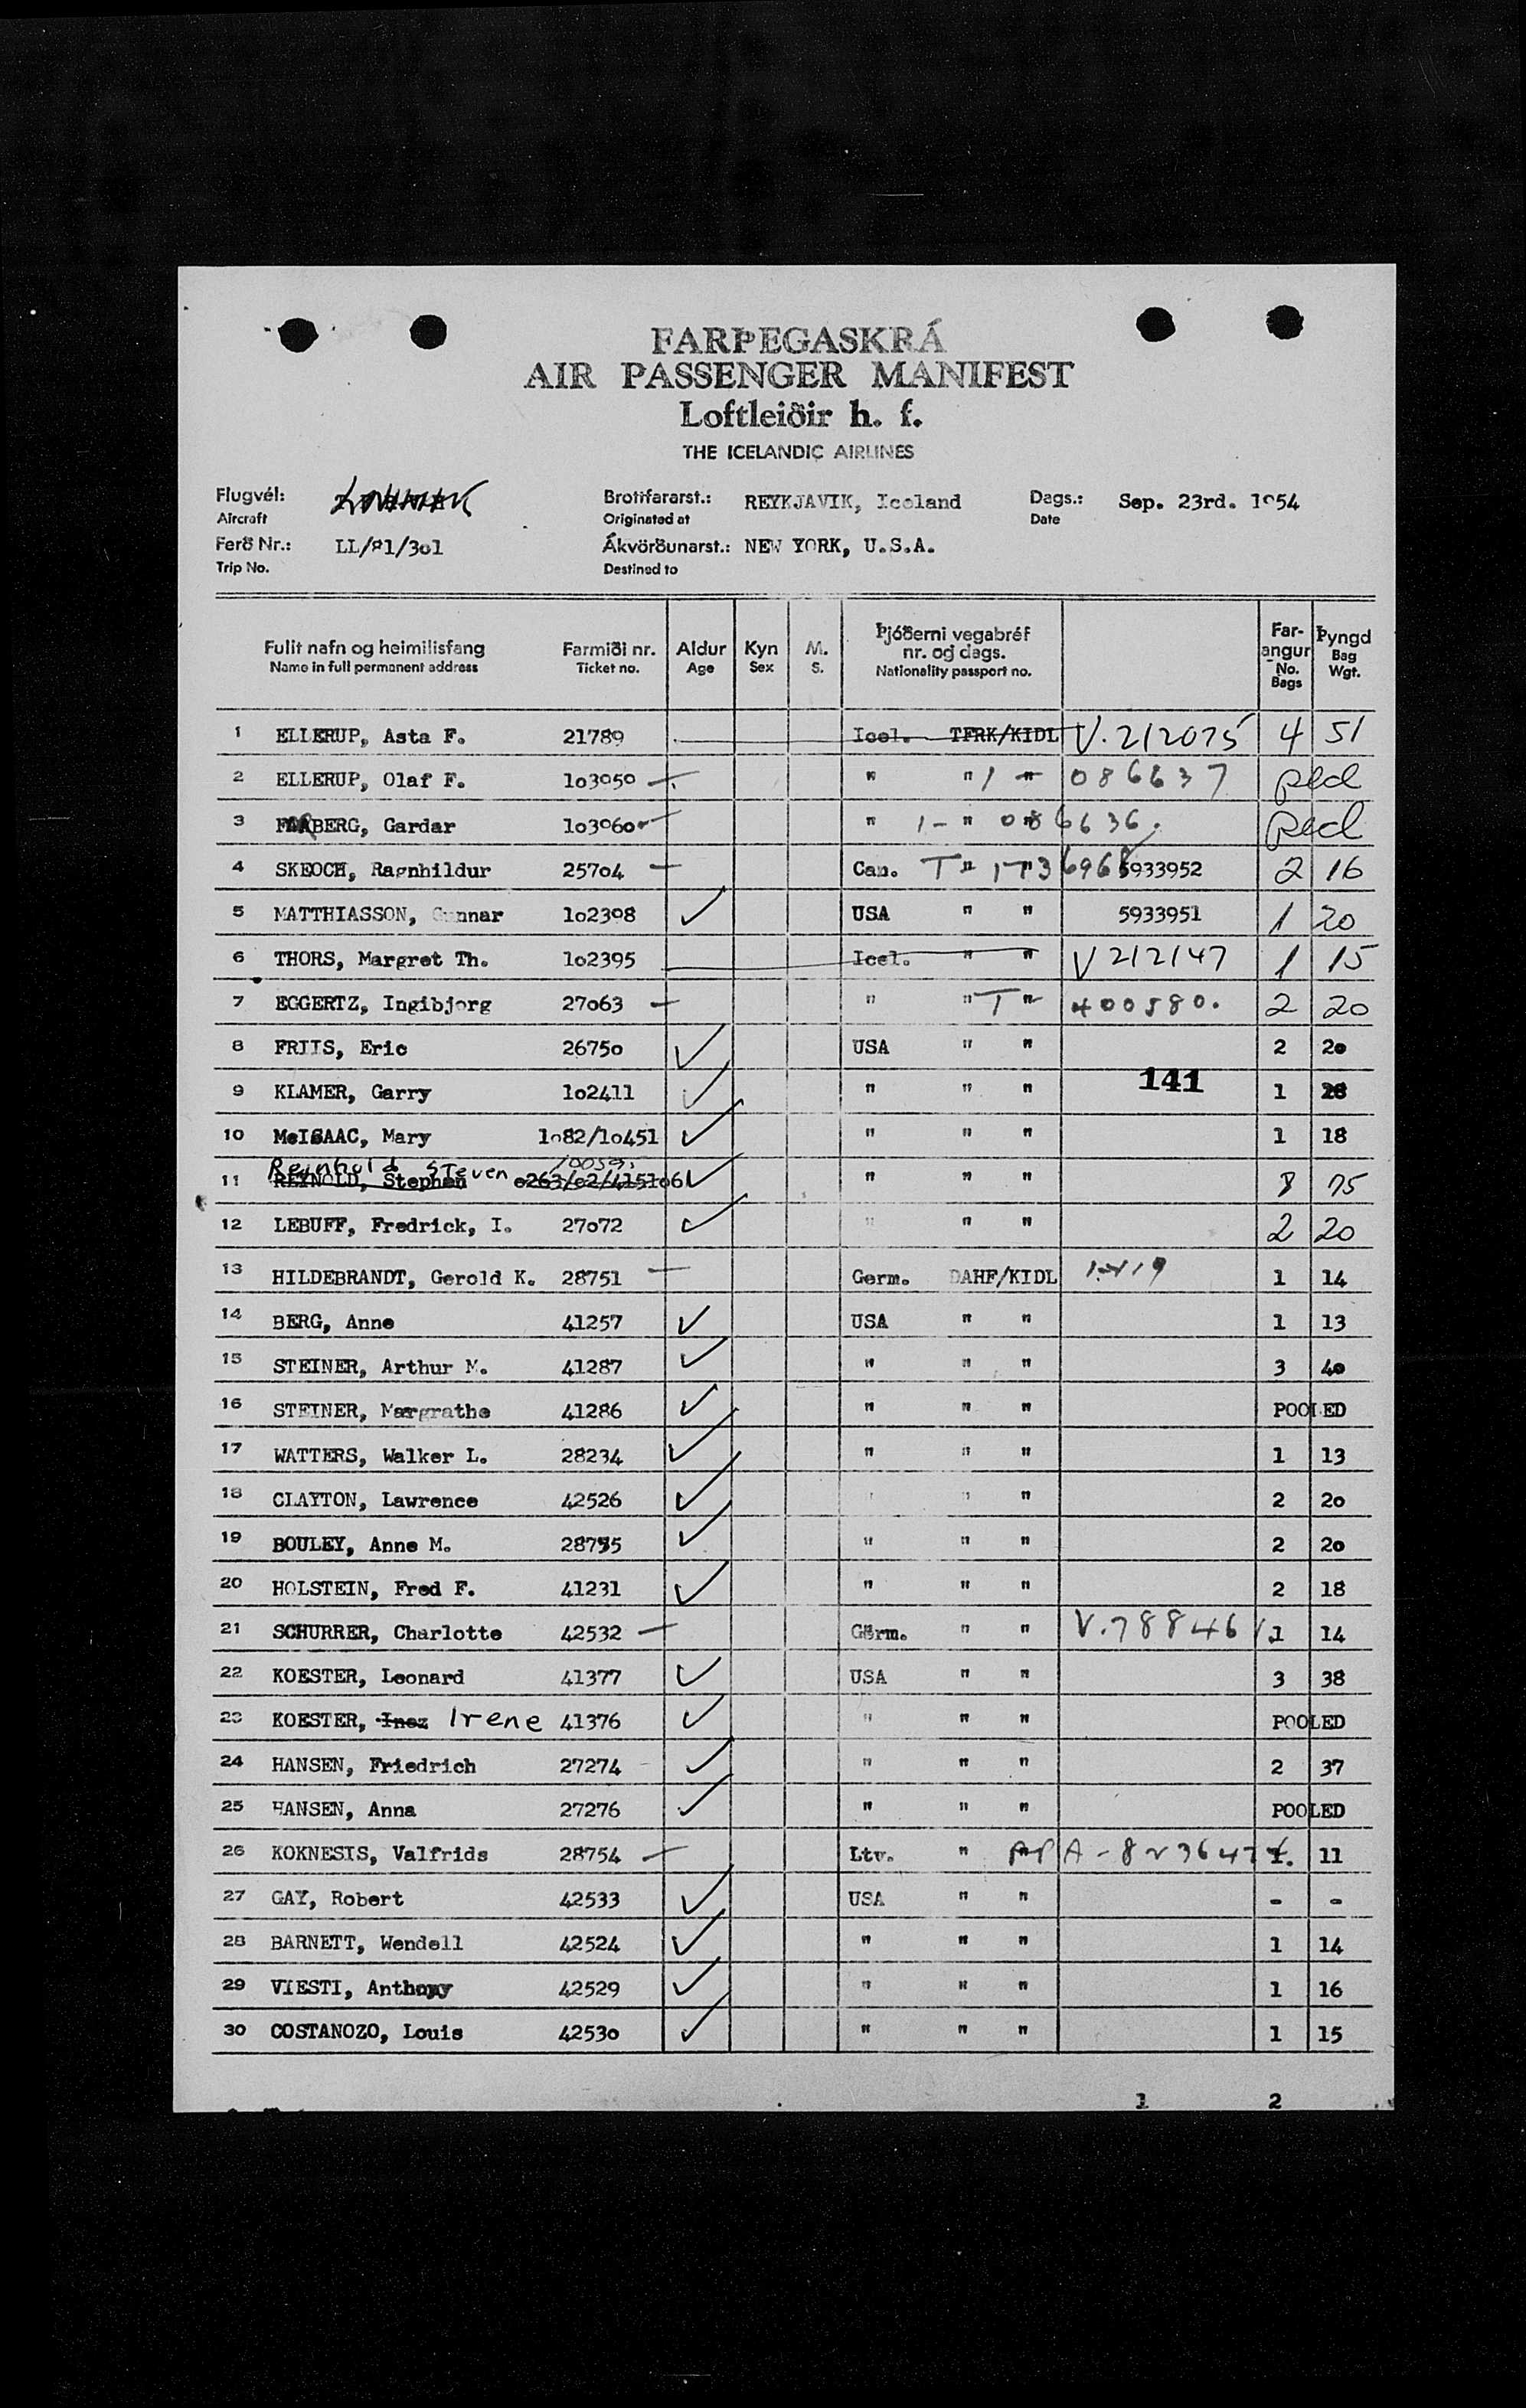 FARÞEGASKRÁ
AIR PASSENGER MANIFEST
Loftleiðir h. f.
THE ICELANDIC AIRLINES
Flugvél: Brottfararst.: REYKJAVIK, Iceland Dags.: Sep. 23rd. 1954
Aircraft Originated at Date
Ferð Nr.: LL/81/3o1 Ákvörðunarst.: NEW YORK, U.S.A.
Trip No. Destined to
Fullt nafn og heimilisfang Farmiði nr. Aldur Kyn M. Þjóðerni vegabréf nr. og dags. Far-angur Þyngd
Name in full permanent address Ticket no. Age Sex S. Nationality passport no. No. Bags Bag Wgt.
1 ELLERUP, Asta F. 21789 Icel. TFRK/KIDL V.212075 4 51
2 ELLERUP, Olaf F. 1o3o5o " " 1 " 086637 pled
3 BERG, Gardar 1o3o6o " 1- " 086636. pled
4 SKEOCH, Ragnhildur 257o4 Can. T " 5933952 2 16
5 MATTHIASSON, Gunnar 1o2398 ✓ USA " " 5933951 1 20
6 THORS, Margret Th. 1o2395 Icel. " " V 212147 1 15
7 EGGERTZ, Ingibjorg 27o63 " " T " 400580. 2 20
8 FRIIS, Eric 2675o ✓ USA " " 2 2o
9 KLAMER, Garry 1o2411 ✓ " " " 141 1
10 McISAAC, Mary 1o82/1o451 ✓ " " " 1 18
Reinhold Steven 10059.
11 REYNOLD, Stephen o263/o2/4151o6 ✓ " " " 8 75
12 LEBUFF, Fredrick, I. 27o72 ✓ " " " 2 20
13 HILDEBRANDT, Gerold K. 28751 Germ. DAHF/KIDL 1 14
14 BERG, Anne 41257 ✓ USA " " 1 13
15 STEINER, Arthur M. 41287 ✓ " " " 3 4o
16 STEINER, Margrathe 41286 ✓ " " " POOLED
17 WATTERS, Walker L. 28234 ✓ " " " 1 13
18 CLAYTON, Lawrence 42526 ✓ " " " 2 2o
19 BOULEY, Anne M. 28755 ✓ " " " 2 2o
20 HOLSTEIN, Fred F. 41231 ✓ " " " 2 18
21 SCHURRER, Charlotte 42532 Germ. " " V.788461 1 14
22 KOESTER, Leonard 41377 ✓ USA " " 3 38
23 KOESTER, Inez Irene 41376 ✓ " " " POOLED
24 HANSEN, Friedrich 27274 ✓ " " " 2 37
25 HANSEN, Anna 27276 ✓ " " " POOLED
26 KOKNESIS, Valfrids 28754 Ltv. " 1. 11
27 GAY, Robert 42533 ✓ USA " " - -
28 BARNETT, Wendell 42524 ✓ " " " 1 14
29 VIESTI, Anthony 42529 ✓ " " " 1 16
30 COSTANOZO, Louis 4253o ✓ " " " 1 15
1 2